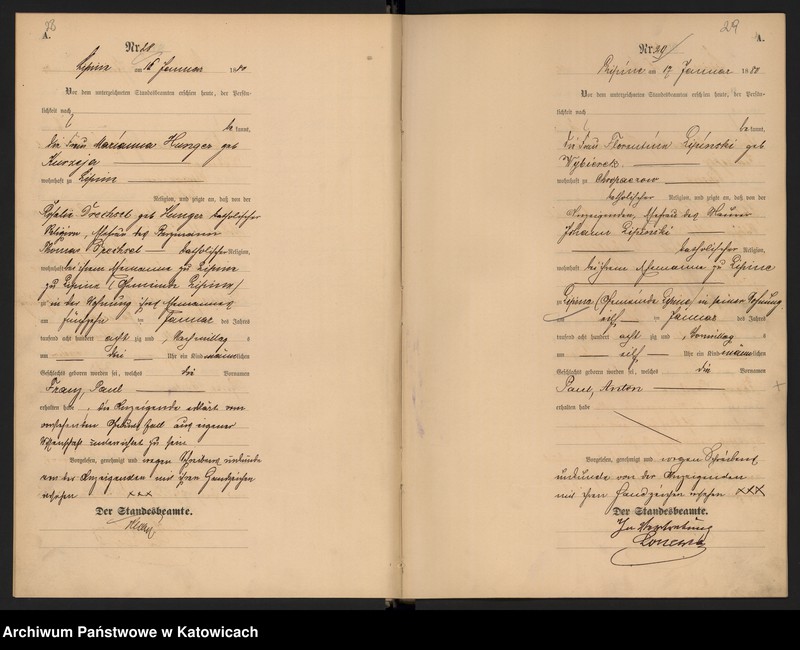 28
A.
Nr. 28
Lipine am 16 Januar 1880
Vor dem unterzeichneten Standesbeamten erschien heute, der Persön-
lichkeit nach
be kannt,
die Frau Marianna Hunger geb
Kurzeja
wohnhaft zu Lipine
Religion, und zeigte an, daß von der
Rosalie Drechsel geb Hunger katholischer
Religion, Ehefrau des
Thomas Drechsel katholischer Religion,
wohnhaft bei ihrem Ehemanne zu Lipine
zu Lipine (Gemeinde Lipine)
in der Wohnung ihres Ehemannes
am fünfzehn ten Januar des Jahres
tausend acht hundert acht zig und , Nachmittag s
um drei Uhr ein Kind männlichen
Geschlechts geboren worden sei, welches die Vornamen
Franz, Paul
erhalten habe , die Anzeigende erklärt von
vorstehenden Geburtsfall aus eigener
Wissenschaft unterrichtet zu sein
Vorgelesen, genehmigt und wegen Schreibens unkunde
von der Anzeigenden mit ihren Handzeichen
versehen xxx
Der Standesbeamte.
29
A.
Nr. 29
Lipine am 17 Januar 1880
Vor dem unterzeichneten Standesbeamten erschien heute, der Persön-
lichkeit nach
be kannt,
die Frau Florentine Lipinski geb
Wybierek
wohnhaft zu Chropaczow
katholischer Religion, und zeigte an, daß von der
Anzeigenden, Ehefrau des Maurer
Johann
katholischer Religion,
wohnhaft bei ihrem Ehemanne zu Lipine
zu Lipine (Gemeinde Lipine) in seiner Wohnung
am elf ten Januar des Jahres
tausend acht hundert acht zig und , Vormittag s
um elf Uhr ein Kind männlichen
Geschlechts geboren worden sei, welches die Vornamen
Paul, Anton
erhalten habe
Vorgelesen, genehmigt und wegen Schreibens
unkunde von der Anzeigenden
mit ihren Handzeichen versehen XXX
Der Standesbeamte.
In Vertretung
Archiwum Państwowe w Katowicach